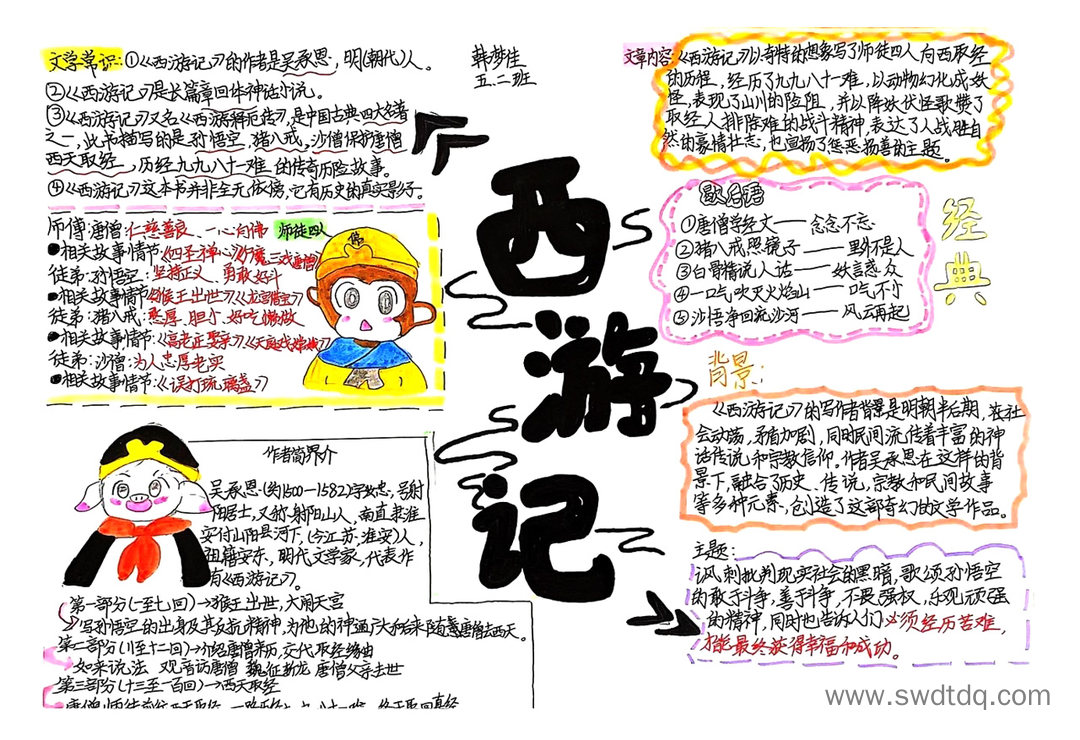 文学常识:①《西游记》的作者是吴承恩,明(朝代)人。
②《西游记》是长篇章回体神话小说。
③《西游记》又名《西游释厄传》,是中国古典四大名著
之一,此书描写的是孙悟空,猪八戒,沙僧保护唐僧
西天取经,历经九九八十一难的传奇历险故事。
④《西游记》这本书并非全无依傍,它有历史的真实影子。
韩梦佳
五.二班
师傅:唐僧:仁慈善良、一心向佛
师徒四人
●相关故事情节:《四圣禅心》《尸魔三戏唐僧》
徒弟:孙悟空:坚持正义、勇敢好斗
●相关故事情节《猴王出世》《龙宫借宝》
徒弟:猪八戒:憨厚、胆小、好吃懒做
●相关故事情节:《高老庄娶亲》《天庭戏嫦娥》
徒弟:沙僧:为人忠厚老实
●相关故事情节:《误打琉璃盏》
佛
作者简界介
吴承恩(约1500—1582)字汝忠,号射
阳居士,又称射阳山人,南直隶淮
安付山阳县河下,(今江苏,淮安)人,
祖籍安东,明代文学家,代表作
有《西游记》。
第一部分(一至七回)→猴王出世,大闹天宫
写孙悟空的出身及其反抗精神,为他的神通广大和未来随唐僧去西天。
第二部分(八至十二回)→介绍唐僧来历,交代取经缘由
如来说法 观音访唐僧 魏征斩龙 唐僧父亲去世
第三部分(十三至一百回)→西天取经
西游记
文章内容:
《西游记》以奇特的想象写了师徒四人向西取经
的历程,经历了九九八十一难,以动物幻化成妖
怪,表现了山川的险阻,并以降妖伏怪歌赞了
取经人排除难的战斗精神,表达了人战胜自
然的豪情壮志,也宣扬了惩恶扬善的主题。
歇后语
①唐僧学经文——念念不忘
②猪八戒照镜子——里外不是人
③白骨精说人话——妖言惑众
④一口气吹灭火焰山——口气不小
⑤沙悟净回流沙河——风云再起
经典
背景:
《西游记》的写作者背景是明朝半后期,在社
会动荡,矛盾加剧,同时民间流传着丰富的神
话传说和宗教信仰。作者吴承恩在这样的背
景下,融合了历史、传说,宗教和民间故事
等多种元素,创造了这部奇幻的文学作品。
主题:
讽刺批判现实社会的黑暗,歌颂孙悟空
的敢于斗争,善于斗争,不畏强权,乐观顽强
的精神,同时也告诉人们必须经历苦难,
才能最终获得幸福和成功。
www.swdtdq.com